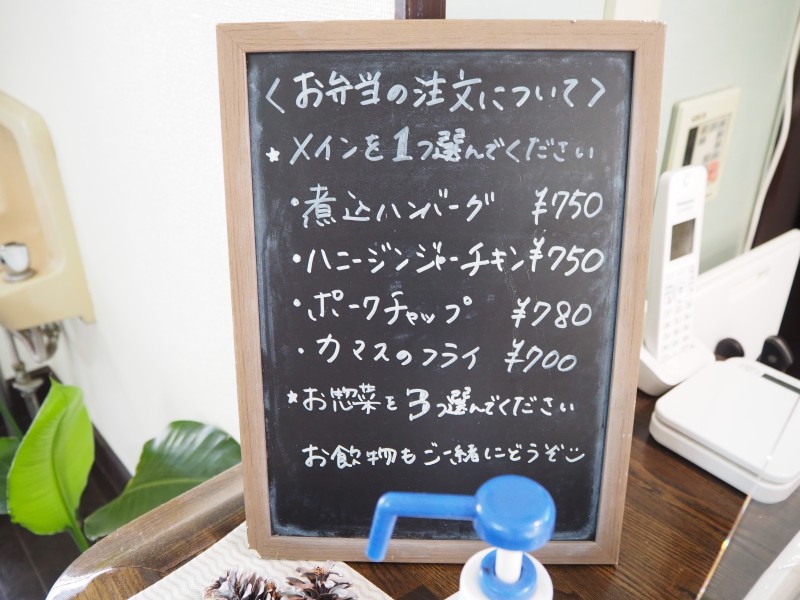 〈お弁当の注文について〉
★メインを1つ選んでください
・煮込ハンバーグ ¥750
・ハニージンジャーチキン ¥750
・ポークチャップ ¥780
・カマスのフライ ¥700
★お惣菜を3つ選んでください
お飲物もご一緒にどうぞ